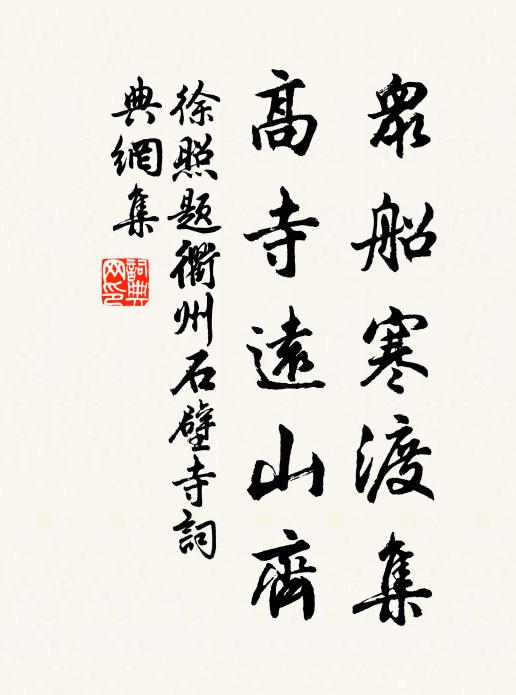 衆船寒渡集
高寺遠山齊
徐照題衢州石壁寺詞
典網集
詞典
网印